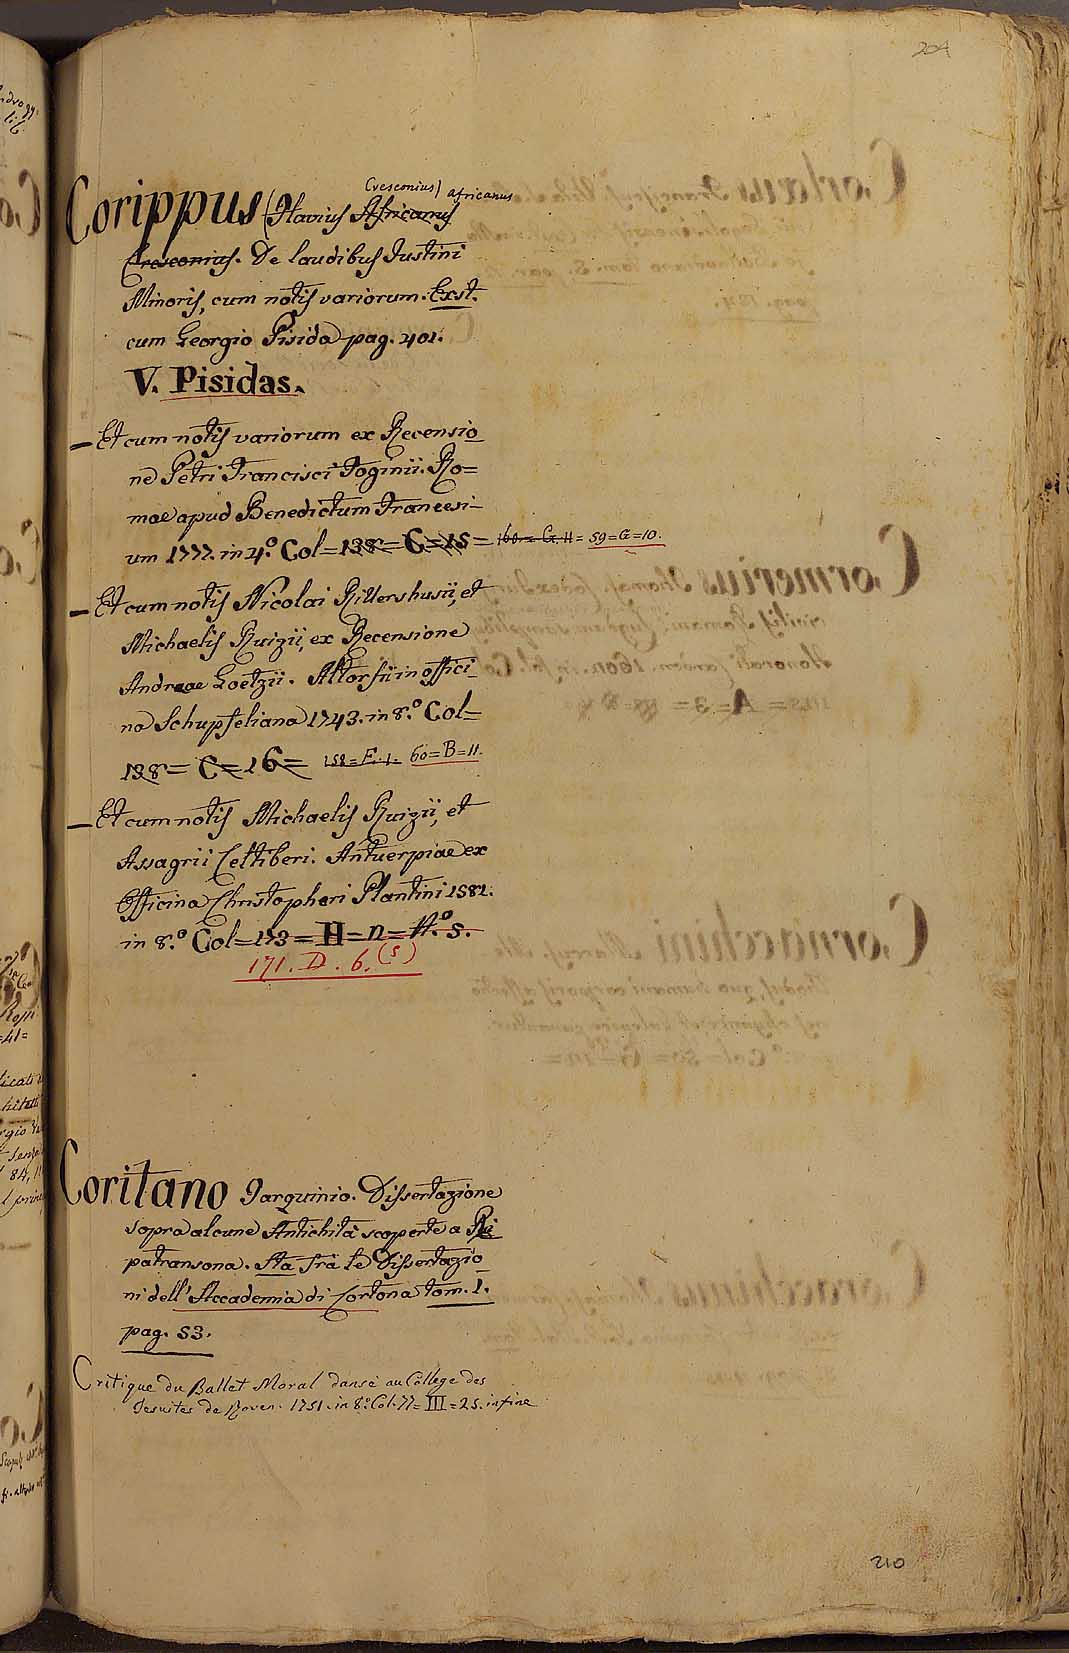 204
Cresconius) africanus
Corippus (Flavius Africanus
Cresconius. De laudibus Justini
Minoris, cum notis variorum. Exst.
cum Georgio Pisida pag. 401.
V. Pisidas.
— Et cum notis variorum ex Recensio
ne Petri Francisci Foginii. Ro=
mae apud Benedictum Francesi-
um 1777. in 4.º Col=138= C=15= 160= G. 11= 59=G=10.
— Et cum notis Nicolai Rittershusii, et
Michaelis Ruizii, ex Recensione
Andreae Goetzii. Altorfii in offici_
na Schupfeliana 1743. in 8.º Col=
138= C=16= 158=F.1. 60=B=11.
— Et cum notis Michaelis Ruizii, et
Assagrii Celtiberi. Antuerpiae ex
Officina Christophori Plantini 1581.
in 8.º Col=173=H=n=N.º 5.
171. D. 6. (5)
Coritano Tarquinio. Dissertazione
sopra alcune Antichità scoperte a Ri
patransona. Sta frà le Dissertazio
ni dell' Accademia di Cortona tom. 1.
pag. 53.
Critique du Ballet Moral dansé au Collège des
Jesuites de Roven. 1751. in 8º. Col. 77= III=25. in fine
210